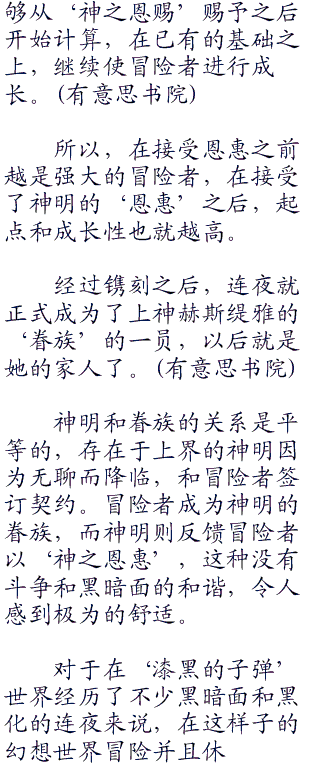 够从‘神之恩赐’赐予之后
开始计算，在已有的基础之
上，继续使冒险者进行成
长。(有意思书院)
所以，在接受恩惠之前
越是强大的冒险者，在接受
了神明的‘恩惠’之后，起
点和成长性也就越高。
经过镌刻之后，连夜就
正式成为了上神赫斯缇雅的
‘眷族’的一员，以后就是
她的家人了。(有意思书院)
神明和眷族的关系是平
等的，存在于上界的神明因
为无聊而降临，和冒险者签
订契约。冒险者成为神明的
眷族，而神明则反馈冒险者
以‘神之恩惠’，这种没有
斗争和黑暗面的和谐，令人
感到极为的舒适。
对于在‘漆黑的子弹’
世界经历了不少黑暗面和黑
化的连夜来说，在这样子的
幻想世界冒险并且休